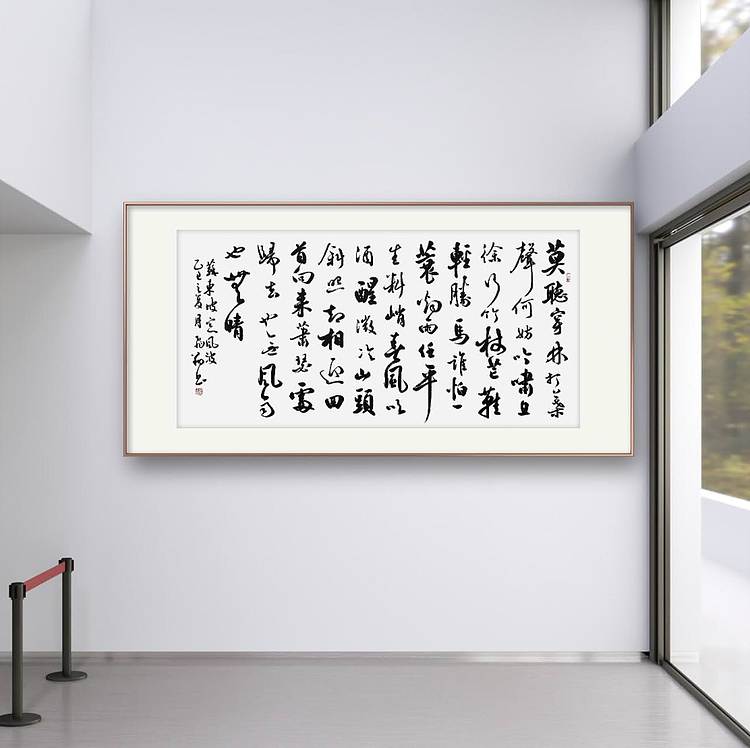 莫聽穿林打葉
聲何妨吟嘯且
徐行竹杖芒鞋
輕勝馬誰怕一
蓑烟雨任平
生料峭春風吹
酒醒微冷山頭
斜照却相迎回
首向来蕭瑟處
歸去也無風雨
也無晴
蘇東坡定風波
乙巳之夏月